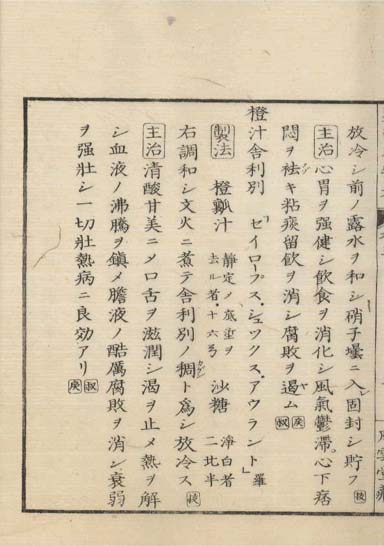 放冷シ前ノ露水ヲ和シ硝子壜ニ入固封シ貯フ
主治心胃ヲ强健シ飲食ヲ消化シ風氣鬱滯心下痞
悶ヲ袪キ粘痰留飲ヲ消シ腐敗ヲ遏ム
橙汁舍利別 「セイロープス・シュックス・アウラント」羅
製法 橙瓤汁 靜定ノ後
去ル者十六 沙糖 淨白者
二北半
右調和シ文火ニ煮テ舍利別ノ稠ト爲シ放冷ス
主治清酸甘美ニメ口舌ヲ滋潤シ渴ヲ止メ熱ヲ解
シ血液ノ沸騰ヲ鎮メ膽液ノ酷厲腐敗ヲ消シ衰弱
ヲ强壯シ一切壯熱病ニ良効アリ